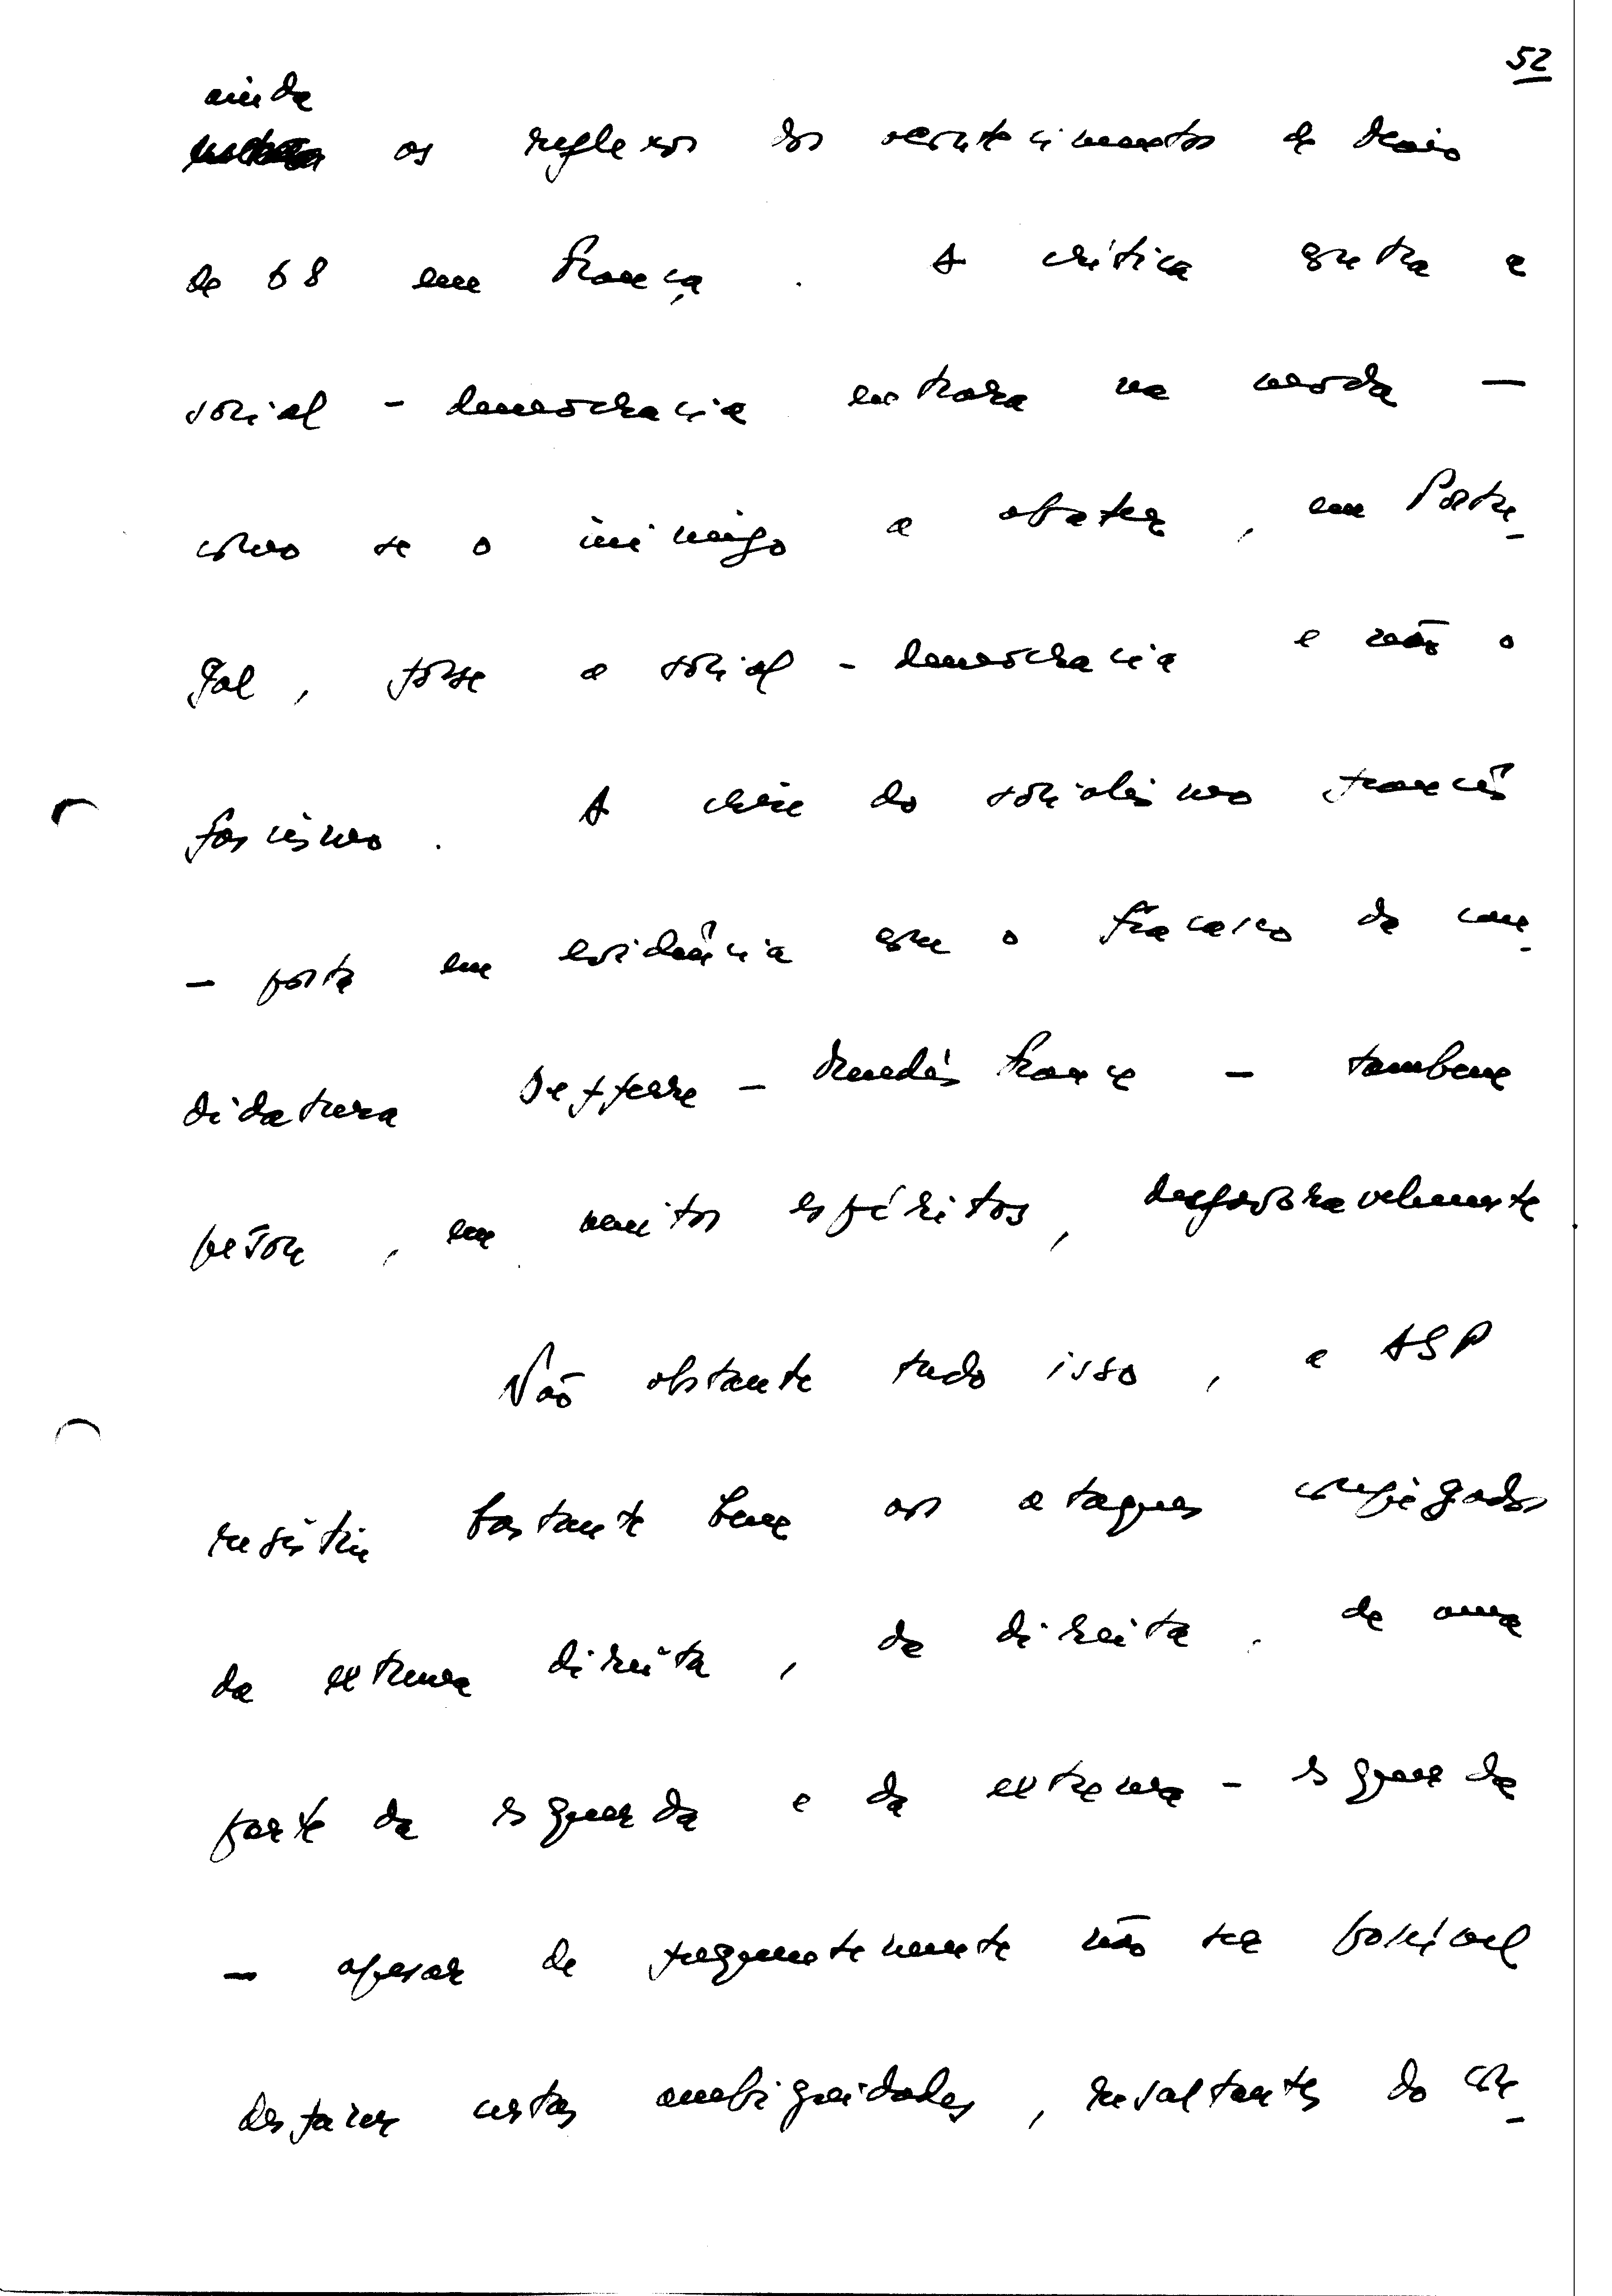 52
ainda
os reflexos dos acontecimentos de Maio
de 68 em França. A crítica contra a
social-democracia entrara na moda —
como se o inimigo a abater, em Portu-
gal, fosse a social-democracia e não o
fascismo. A crise do socialismo francês
— posta em evidência com o fracasso da can-
didatura Defferre-Mendès France — tambem
pesou, em muitos espíritos, desfavoravelmente
Não obstante tudo isso, a ASP
resistiu bastante bem aos ataques conjugados
da extrema direita, da direita, de uma
parte da esquerda e da extrema-esquerda
— apesar de frequentemente não ser possível
desfazer certas ambiguidades, resultantes do con-